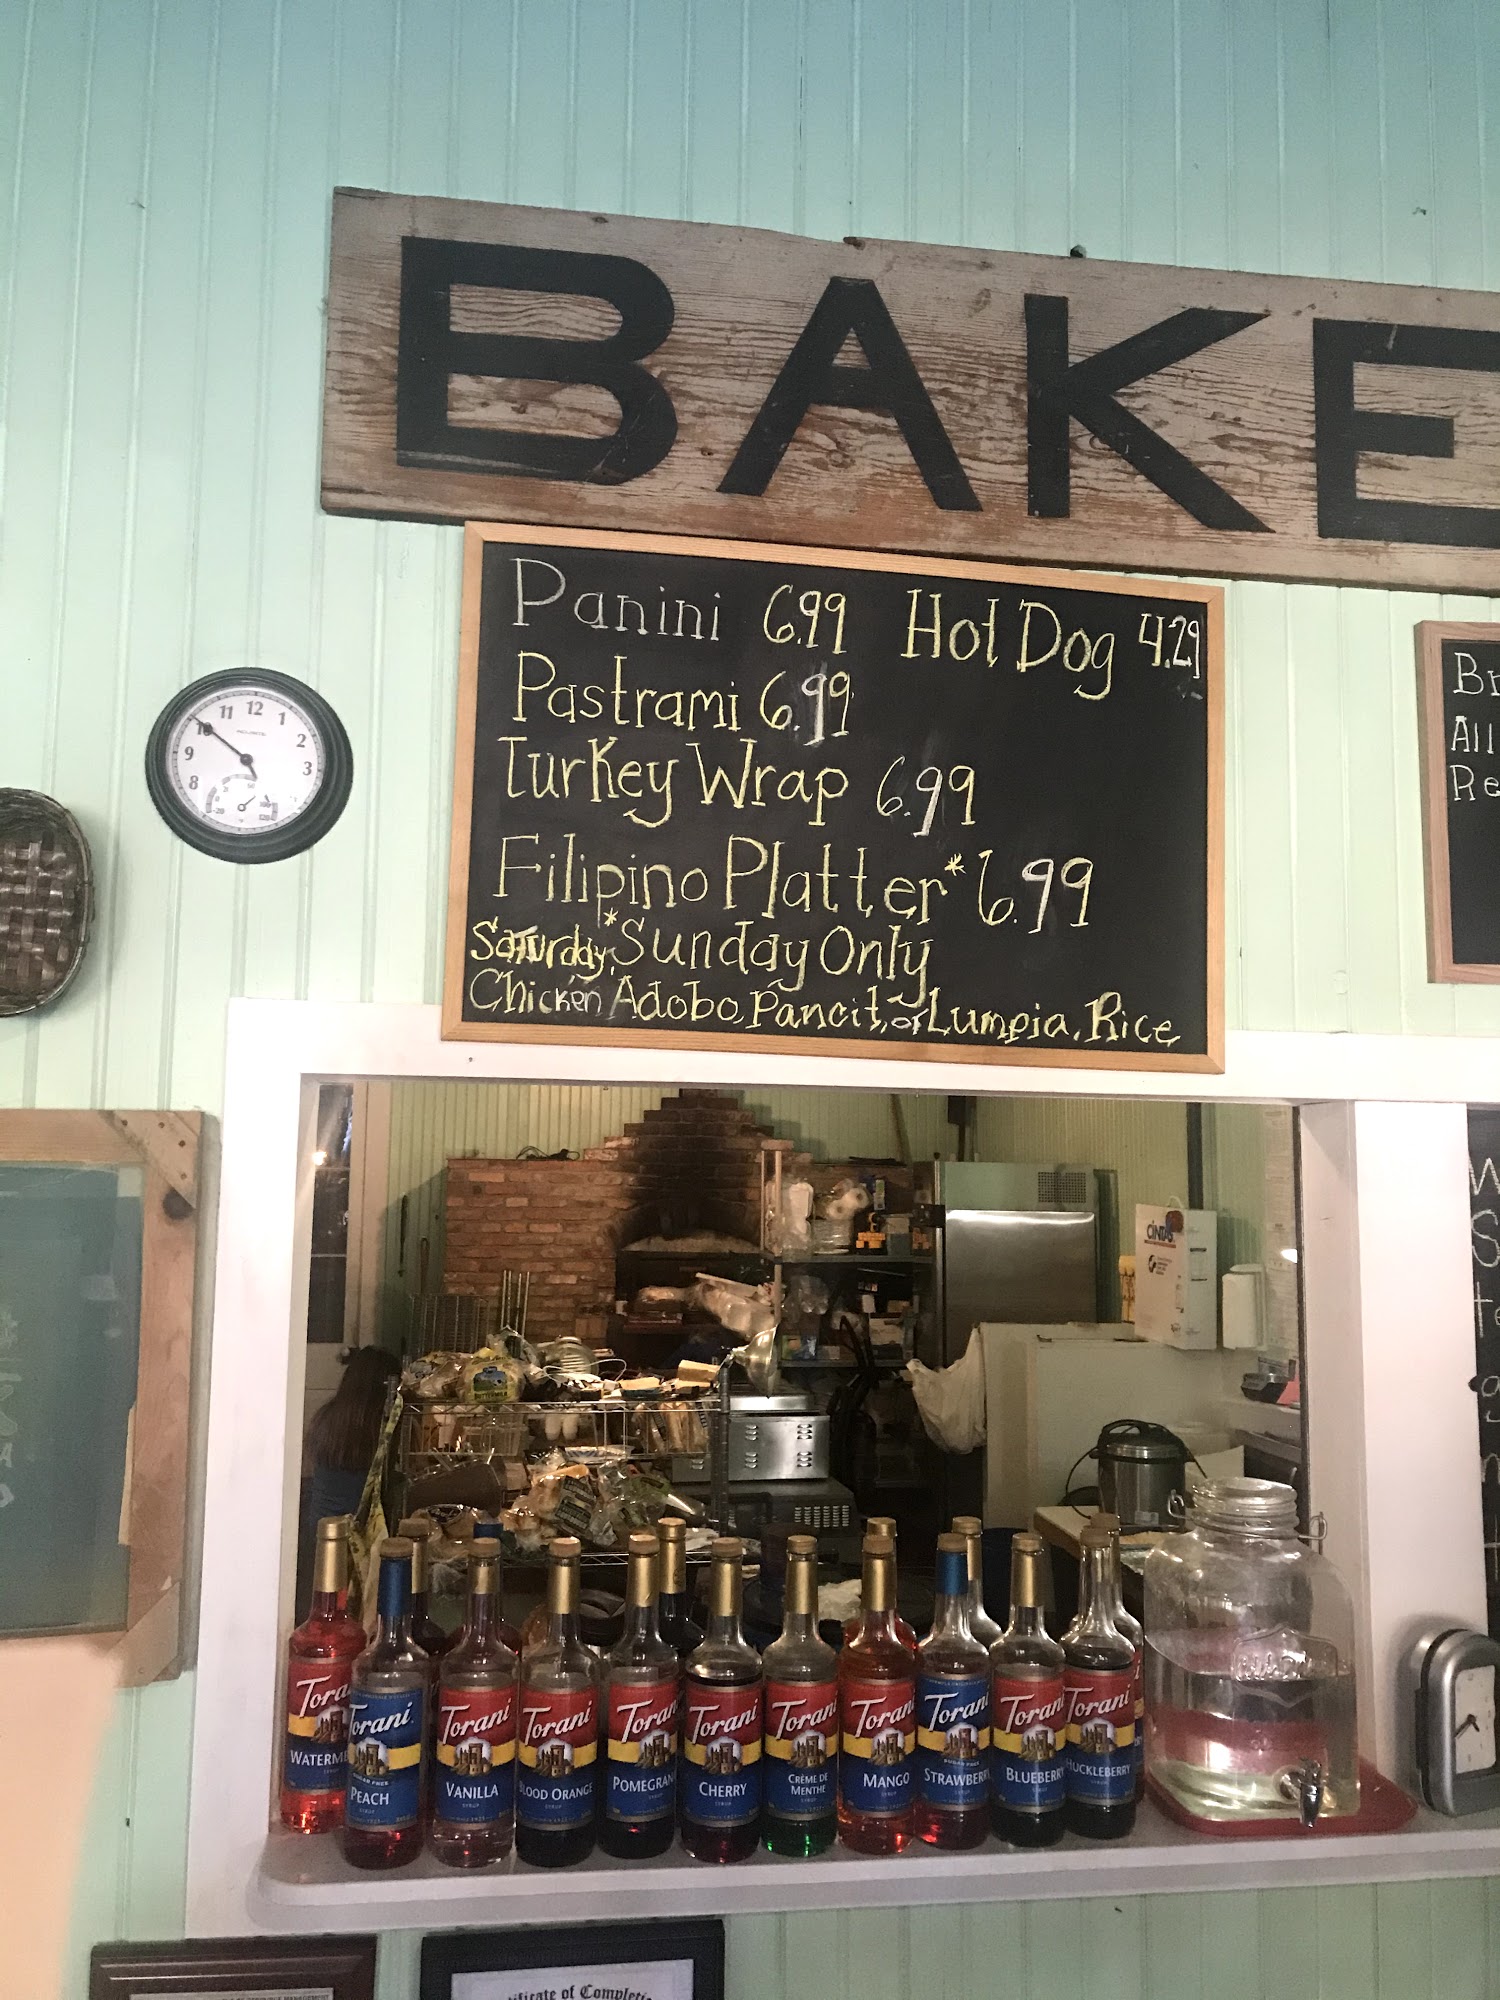 BAKE
Panini 6.99 Hot Dog 4.29
Pastrami 6.99
Turkey Wrap 6.99
Filipino Platter* 6.99
Saturday, *Sunday Only
Chicken Adobo, Pancit, or Lumpia, Rice
Br
All
Re
11 12 1
10 2
9 3
8
CINTAS
W
S
Torani
WATERME
Torani
SUGAR FREE
PEACH
Torani
VANILLA
SYRUP
Torani
BLOOD ORANGE
SYRUP
Torani
POMEGRAN
Torani
CHERRY
SYRUP
Torani
CRÈME DE
MENTHE
Torani
MANGO
SYRUP
Torani
SUGAR FREE
STRAWBERRY
Torani
BLUEBERRY
Torani
HUCKLEBERRY
SYRUP
tificate of Completio